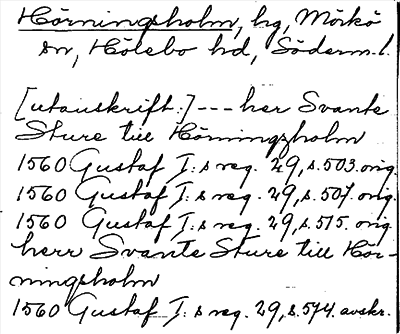 Hörningsholm, hg, Mörkö
sn, Hölebo hd, Söderm. l.
[utanskrift:] --- her Svante
Sture till Hörningzholm
1560 Gustaf I:s reg. 29, s. 503. orig.
1560 Gustaf I:s reg. 29, s. 507. orig.
1560 Gustaf I:s reg. 29, s. 515. orig.
herr Svante Sture till Hör-
ningsholm
1560 Gustaf I:s reg. 29, s. 574. avskr.